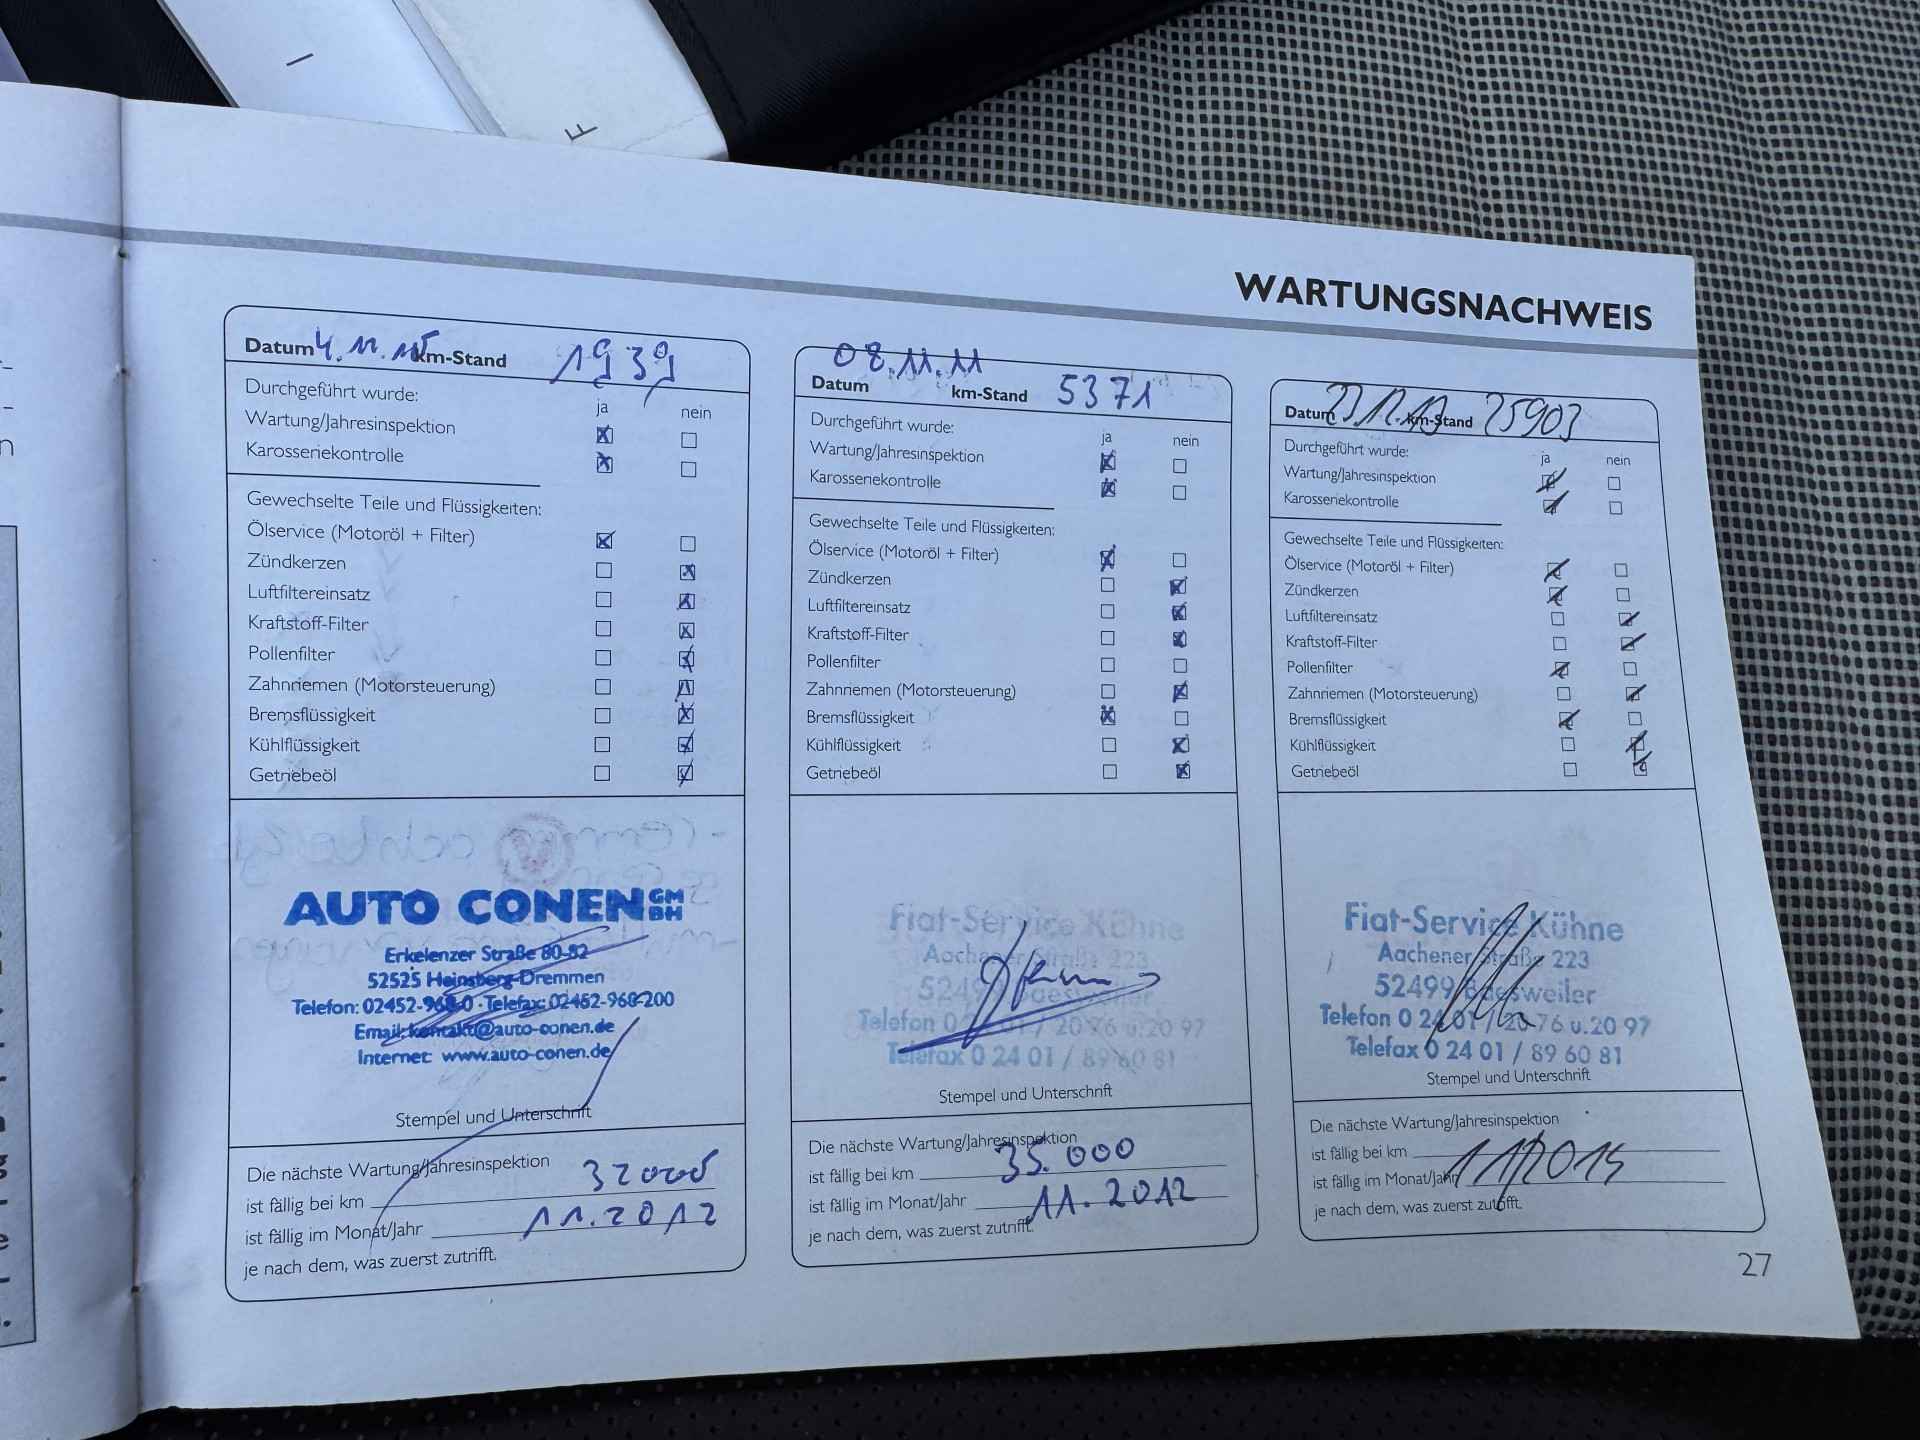 I
F
WARTUNGSNACHWEIS
Datum 4.11. km-Stand 1939
Durchgeführt wurde:
ja nein
Wartung/Jahresinspektion
Karosseriekontrolle
Gewechselte Teile und Flüssigkeiten:
Ölservice (Motoröl + Filter)
Zündkerzen
Luftfiltereinsatz
Kraftstoff-Filter
Pollenfilter
Zahnriemen (Motorsteuerung)
Bremsflüssigkeit
Kühlflüssigkeit
Getriebeöl
AUTO CONEN GMBH
Erkelenzer Straße 80-82
52525 Heinsberg-Dremmen
Telefon: 02452-960-0 · Telefax: 02452-960-200
Email: kontakt@auto-conen.de
Internet: www.auto-conen.de
Stempel und Unterschrift
Die nächste Wartung/Jahresinspektion
ist fällig bei km 32000
ist fällig im Monat/Jahr 11.2012
je nach dem, was zuerst zutrifft.
08.11.11
Datum km-Stand 5371
Durchgeführt wurde:
ja nein
Wartung/Jahresinspektion
Karosseriekontrolle
Gewechselte Teile und Flüssigkeiten:
Ölservice (Motoröl + Filter)
Zündkerzen
Luftfiltereinsatz
Kraftstoff-Filter
Pollenfilter
Zahnriemen (Motorsteuerung)
Bremsflüssigkeit
Kühlflüssigkeit
Getriebeöl
Fiat-Service Kühne
Aachener Straße 223
52499 Baesweiler
Telefon 0 24 01 / 20 76 u. 20 97
Telefax 0 24 01 / 89 60 81
Stempel und Unterschrift
Die nächste Wartung/Jahresinspektion
ist fällig bei km 35.000
ist fällig im Monat/Jahr 11.2012
je nach dem, was zuerst zutrifft.
Datum km-Stand 25903
Durchgeführt wurde:
ja nein
Wartung/Jahresinspektion
Karosseriekontrolle
Gewechselte Teile und Flüssigkeiten:
Ölservice (Motoröl + Filter)
Zündkerzen
Luftfiltereinsatz
Kraftstoff-Filter
Pollenfilter
Zahnriemen (Motorsteuerung)
Bremsflüssigkeit
Kühlflüssigkeit
Getriebeöl
Fiat-Service Kühne
Aachener Straße 223
52499 Baesweiler
Telefon 0 24 01 / 20 76 u. 20 97
Telefax 0 24 01 / 89 60 81
Stempel und Unterschrift
Die nächste Wartung/Jahresinspektion
ist fällig bei km
ist fällig im Monat/Jahr
je nach dem, was zuerst zutrifft.
27